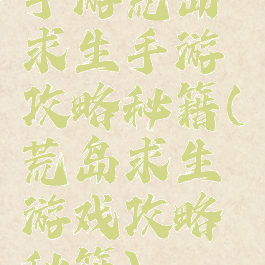 手游荒岛
求生手游
攻略秘籍(
荒岛求生
游戏攻略
秘籍)